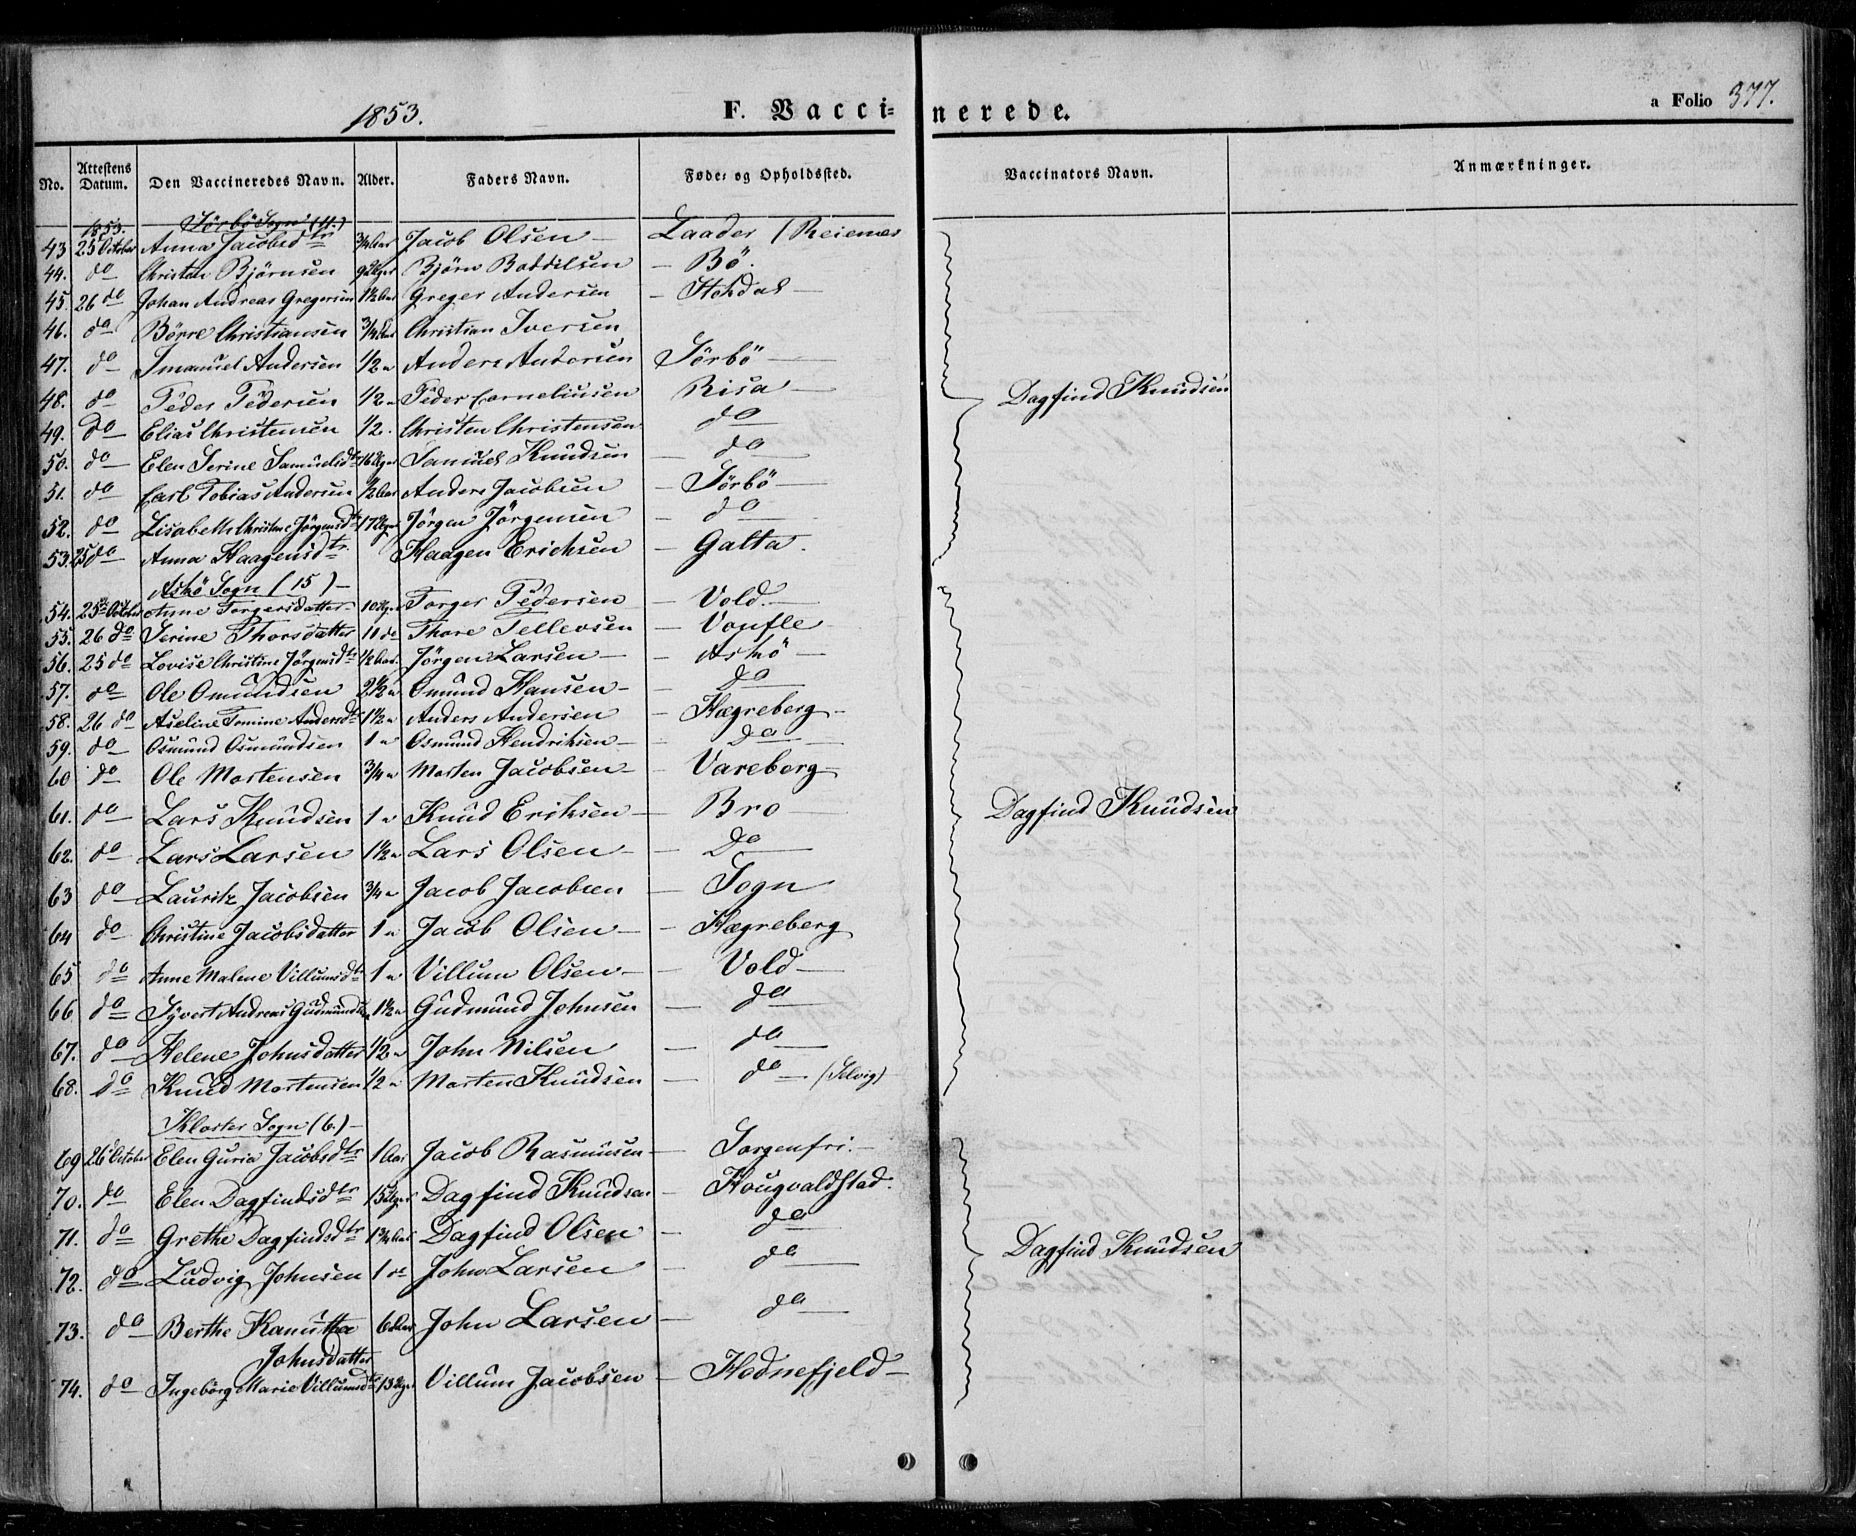 1853.
F. Vaccinerede.
a Folio 377.
No. Attestens Datum. Den Vaccineredes Navn. Alder. Faders Navn. Føde- og Opholdssted. Vaccinators Navn. Anmærkninger.
1853. Sörbö Sogn (11.)
43 25 October Anna Jacobsdtr 3/4 Aar Jacob Olsen — Laader / Reienes
44. do Christen Björnsen 9 Uger Björn Boddilsen — Bö.
45. 26 do Johan Andreas Gregersen 1 1/2 Aar Greger Andersen — Stokdal —
46. do Börre Christiansen 3/4 Aar Christian Iversen
47. do Imanuel Andersen 1/2 " Anders Andersen Sörbö —
48. do Peder Pedersen 1/2 " Peder Corneliussen Risa —
49. do Elias Christensen 1/2. Christen Christensen do
50. do Elen Serine Samuelsdtr 16 Uger Samuel Knudsen — do
51. do Carl Tobias Andersen 1/2 Aar Anders Jacobsen — Sörbö —
52. do Lisabeth Christine Jörgensdtr 17 Uger Jörgen Jörgensen — do
53. 25 do Anna Haagensdtr Haagen Erichsen — Galta.
Dagfind Knudsen
Askö Sogn (15) —
54. 25de October Anne Torgersdatter 10 Uger Torger Pedersen — Vold. —
55. 26 do Serine Thorsdatter 10 do Thore Tellevsen — Voufle
56. 25 do Lovise Christine Jörgensdtr 1/2 Aar. Jörgen Larsen — Askö —
57. do Ole Omundsen 2 1/2 " Omund Hansen — do
58. 26 do Aseline Tomine Andersdtr 1 1/2 " Anders Andersen — Hægreberg —
59. do Osmund Osmundsen 1 " Osmund Hendriksen — do
60 do Ole Mortensen 3/4 " Morten Jacobsen — Vareberg
61. do Lars Knudsen 1 " Knud Eriksen — Bro
62. do Lars Larsen 1 1/2 " Lars Olsen — Do
63 do Lauritz Jacobsen 3/4 " Jacob Jacobsen — Sogn
64 do Christine Jacobsdatter 1 " Jacob Olsen — Hægreberg
65 do Anne Malene Villumsdtr 1 " Villum Olsen — Vold —
66 do Syvert Andreas Gudmunds. 1 1/2 " Gudmund Johnsen — do
67. do Helene Johnsdatter 1/2 " John Nilsen — do
68. do Knud Mortensen 1/2 " Morten Knudsen — do — (Selvig)
Dagfind Knudsen
Kloster Sogn (6.) —
69 26 October Elen Guria Jacobsdtr 1 Aar Jacob Rasmussen — Sorgenfri. —
70. do Elen Dagfindsdtr 15 Uger Dagfind Knudsen — Hougvaldstad.
71. do Grethe Dagfindsdtr 1 3/4 Aar Dagfind Olsen — do
72. do Ludvig Johnsen 1 do John Larsen — do
73. do Berthe Kanutha Johnsdatter 6 Aar John Larsen — do
74. do Ingeborg Marie Villumsdtr 13 Uger Villum Jacobsen — Hodnefjeld —
Dagfind Knudsen